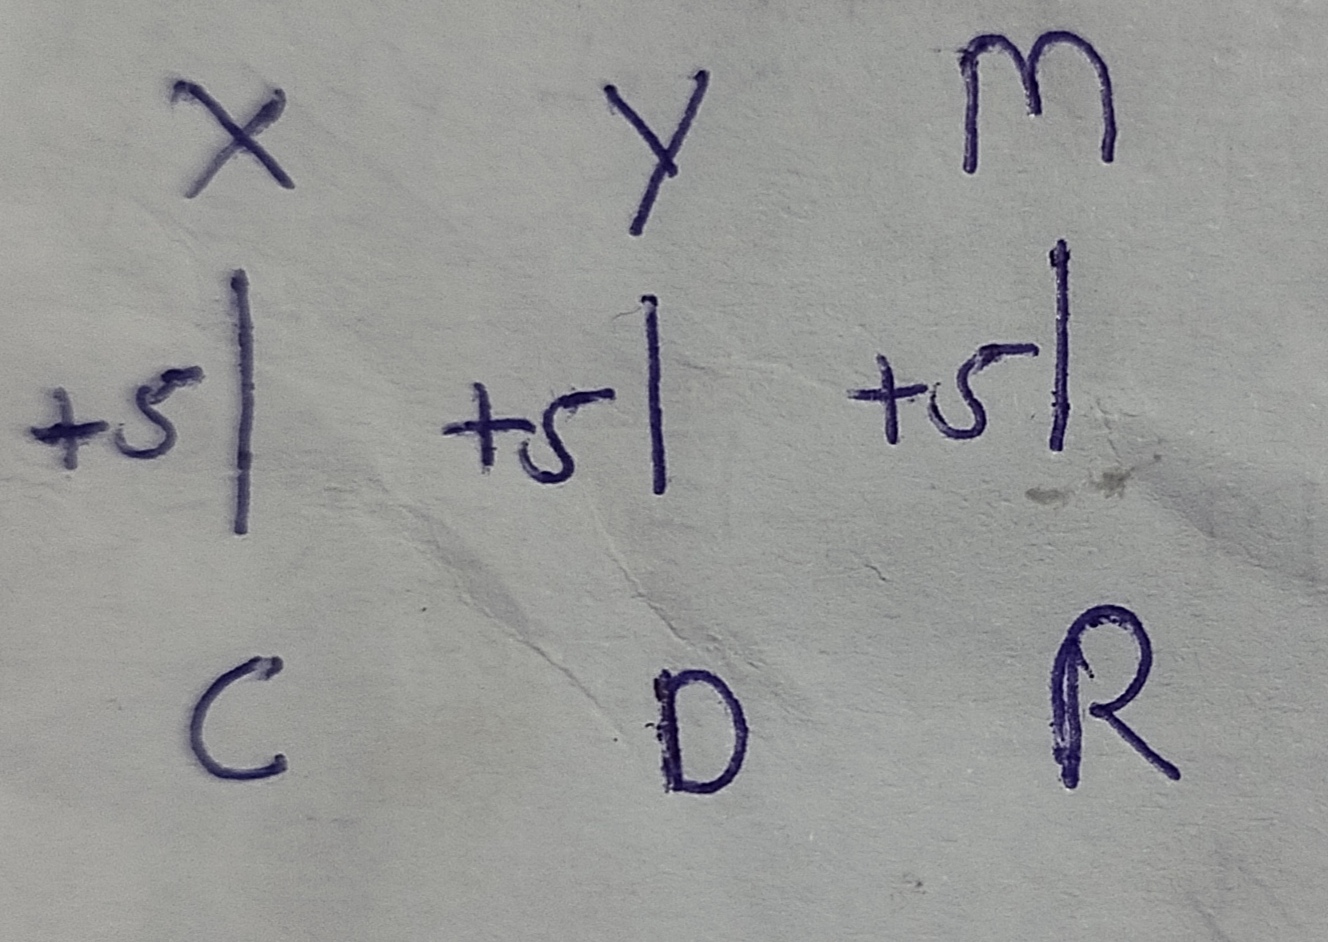 X Y M
+5| +5| +5|
C D R